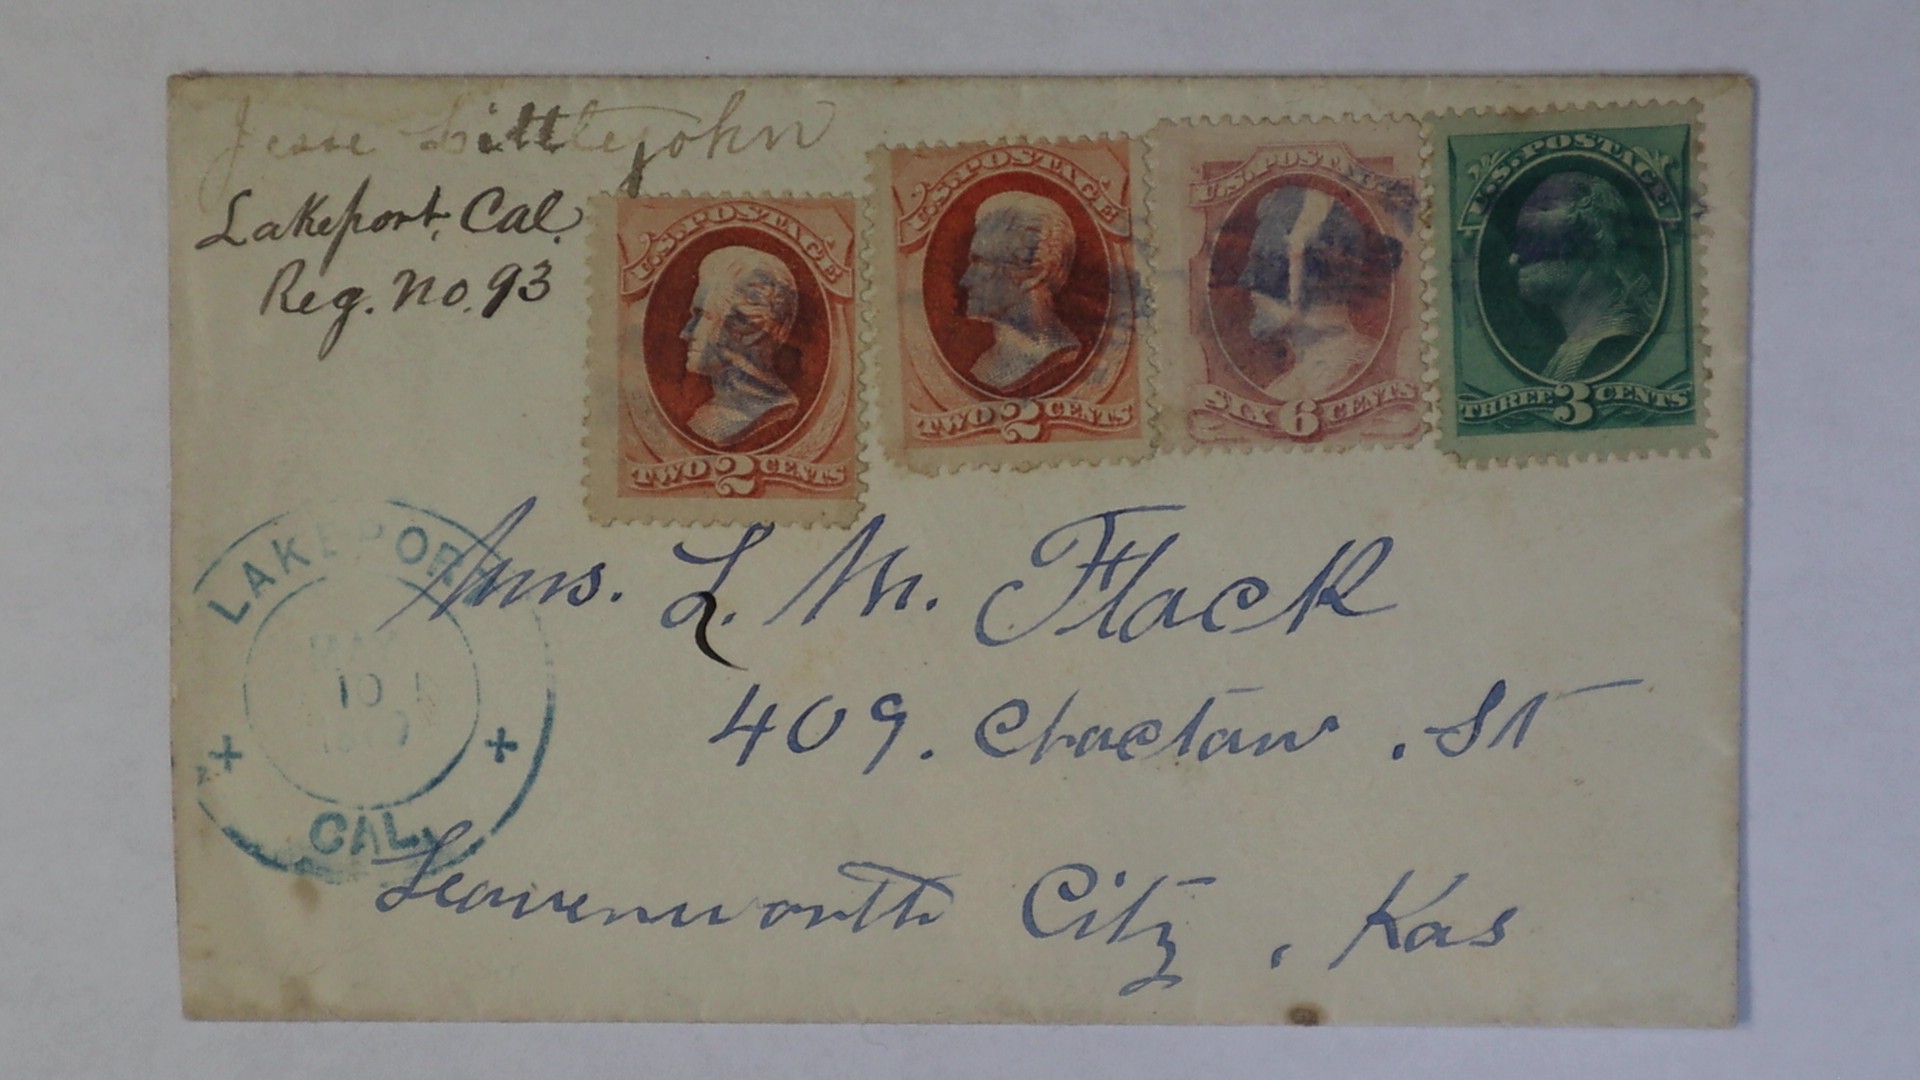 Jesse Littlejohn
Lakeport, Cal.
Reg. No. 93
U.S. POSTAGE
TWO 2 CENTS
U.S. POSTAGE
TWO 2 CENTS
U.S. POSTAGE
SIX 6 CENTS
U.S. POSTAGE
THREE 3 CENTS
LAKEPORT
MAY
10
CAL.
Mrs. L. M. Flack
409. Choctaw. St
Leavenworth City, Kas